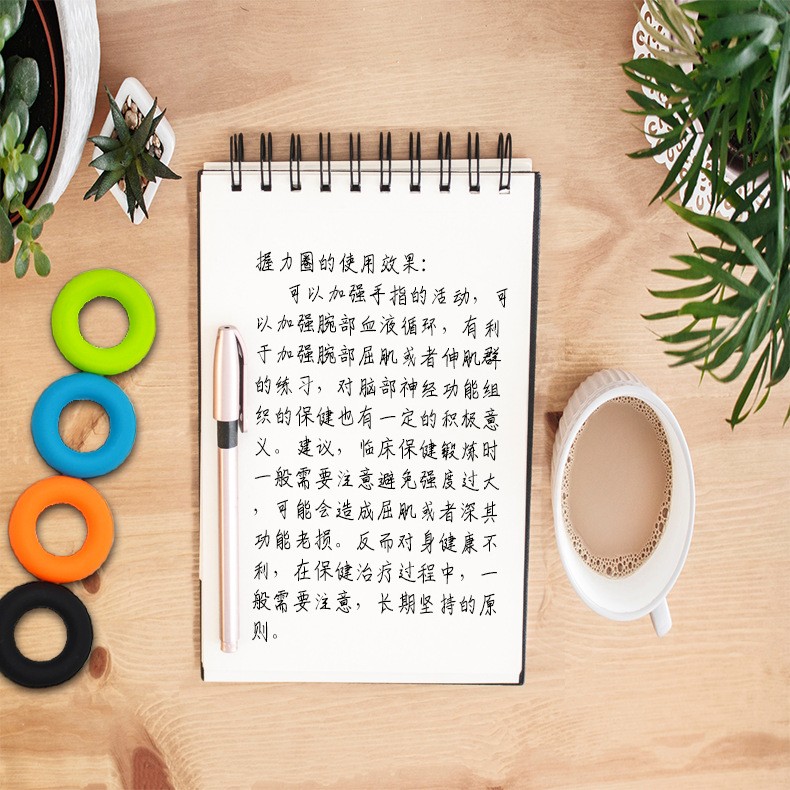 握力圈的使用效果：
可以加强手指的活动，可
以加强腕部血液循环，有利
于加强腕部屈肌或者伸肌群
的练习，对脑部神经功能组
织的保健也有一定的积极意
义。建议，临床保健锻炼时
一般需要注意避免强度过大
，可能会造成屈肌或者深其
功能老损。反而对身健康不
利，在保健治疗过程中，一
般需要注意，长期坚持的原
则。